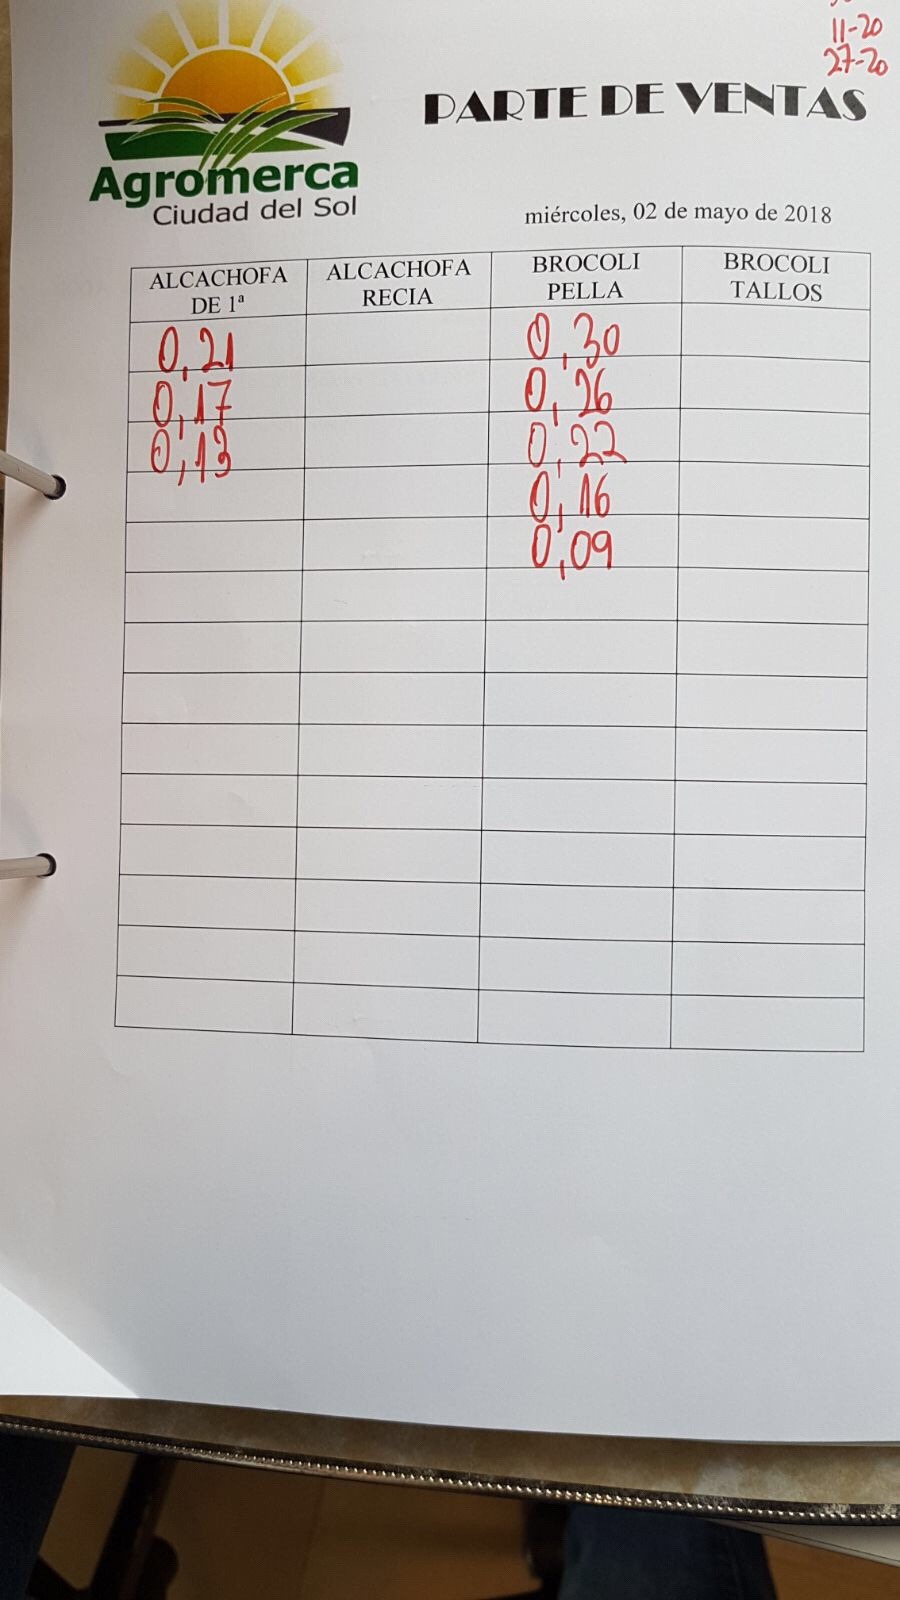 11-20
27-20
PARTE DE VENTAS
Agromerca
Ciudad del Sol
miércoles, 02 de mayo de 2018
ALCACHOFA DE 1ª ALCACHOFA RECIA BROCOLI PELLA BROCOLI TALLOS
0,21 0,30
0,17 0,26
0,13 0,22
0,16
0,09